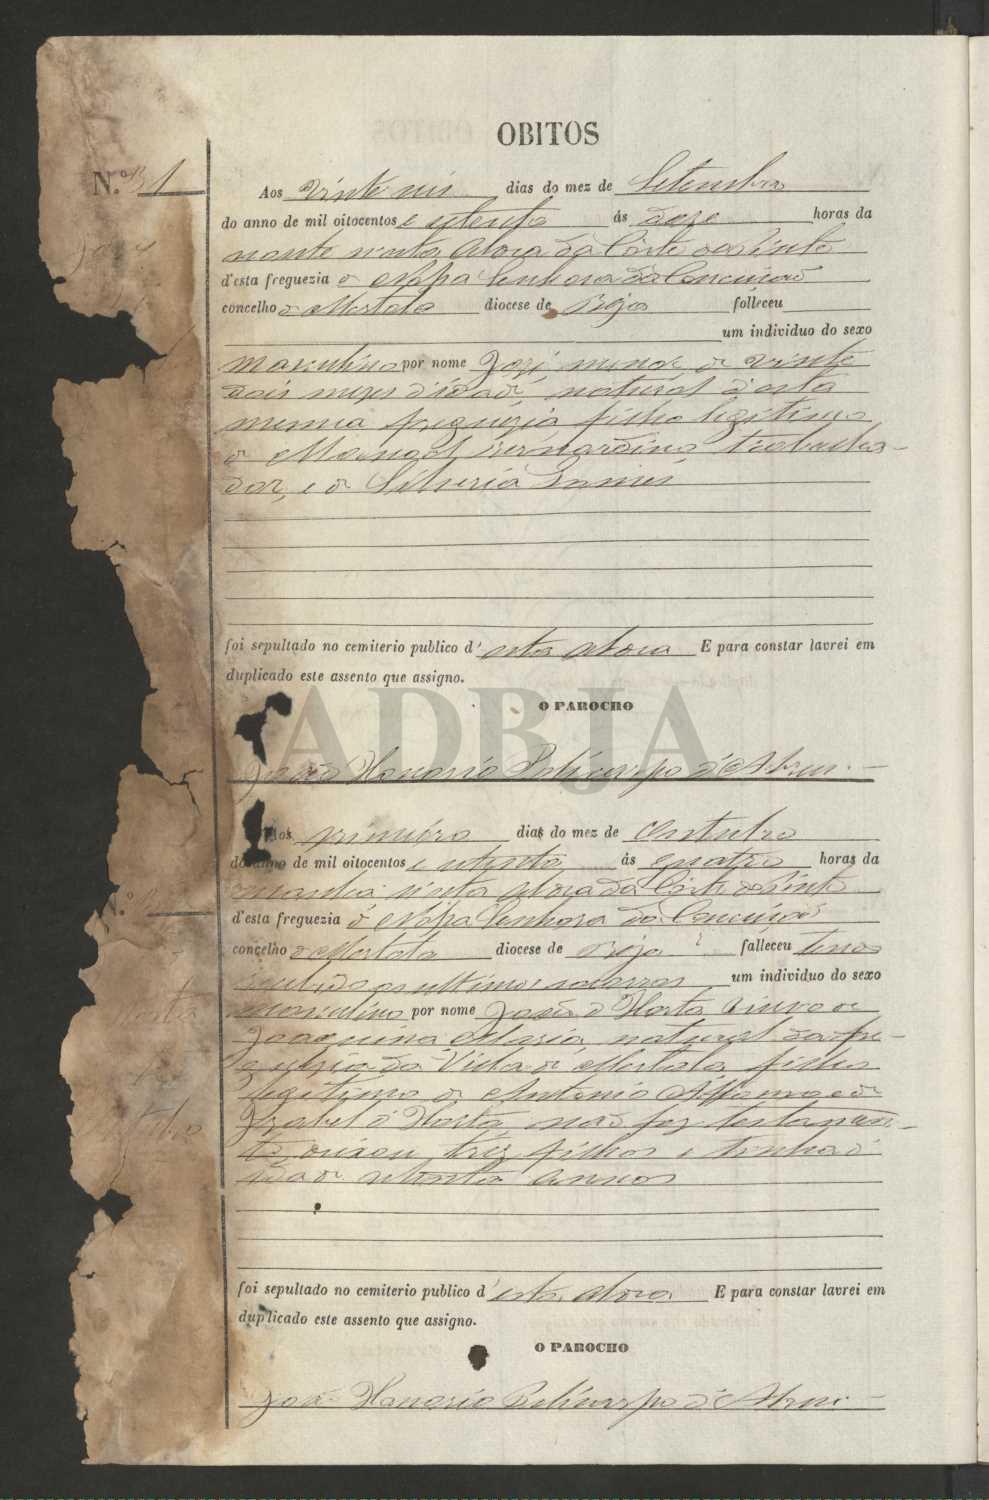 OBITOS
N.º 1
Aos vinte dias do mez de Setembro
do anno de mil oitocentos e setenta ás doze horas da
noute n'esta Aldea da Corte do Pinto
d'esta freguezia de Nossa Senhora da Conceição
concelho de Mertola diocese de Beja falleceu
um individuo do sexo
masculino por nome José, menor de vinte
dois mezes d'idade, natural d'esta
mesma freguezia filho legitimo
de Manoel Bernardino trabalha-
dor, e de Silveria
foi sepultado no cemiterio publico d'esta Aldea E para constar lavrei em
duplicado este assento que assigno.
O PAROCHO
ADBJA
João Honorio Policarpo d'Abreu.
Aos primeiro dias do mez de Outubro
do anno de mil oitocentos e setenta ás quatro horas da
manhã n'esta Aldea da Corte do Pinto
d'esta freguezia de Nossa Senhora da Conceição
concelho de Mertola diocese de Beja falleceu tendo
recebido os ultimos socorros um individuo do sexo
masculino por nome José d'Horta viuvo de
Joaquina Maria, natural da fre-
guezia da Villa de Mertola, filho
legitimo de Antonio Affonso e de
Izabel d'Horta, não fez testamen-
to, deixou tres filhos e tinha d'i-
dade setenta annos
foi sepultado no cemiterio publico d'esta Aldea E para constar lavrei em
duplicado este assento que assigno.
O PAROCHO
João Honorio Policarpo d'Abreu